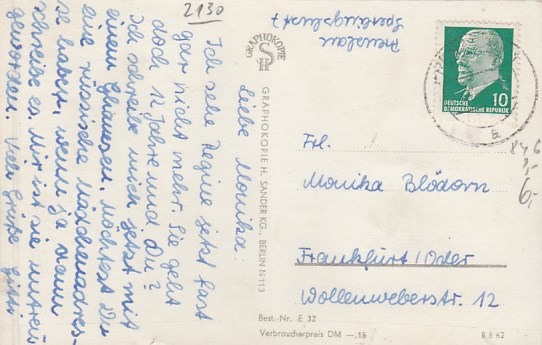 2130
Prenzlau
Sperlingslust 7
Liebe Monika!
Ich sehe Regine jetzt fast
gar nicht mehr. Sie geht
doch 12 Jahre und Du?
Ich schreibe mich jetzt mit
einem Ghanesen. Möchtest Du
eine russische Mädchenadres-
se haben, wenn ja dann
schreibe es. Mir ist sie untreu
geworden. Viele Grüße
GRAPHOKOPIE
GRAPHOKOPIE H. SANDER KG., BERLIN N 113
DEUTSCHE
DEMOKRATISCHE REPUBLIK
10
Frl.
Monika Blödorn
Frankfurt/Oder
Wollenweberstr. 12
6,-
Best.-Nr. E 32
Verbraucherpreis DM —,15